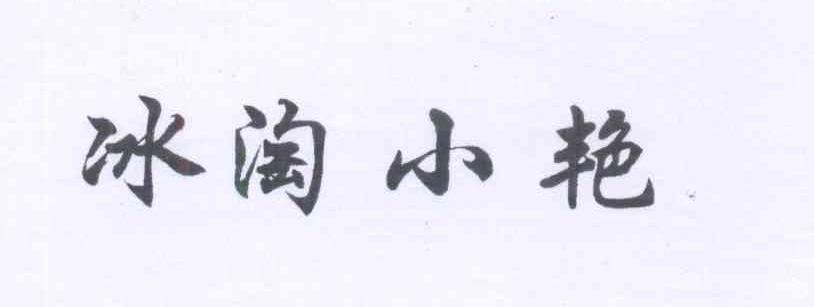 冰淘小艳